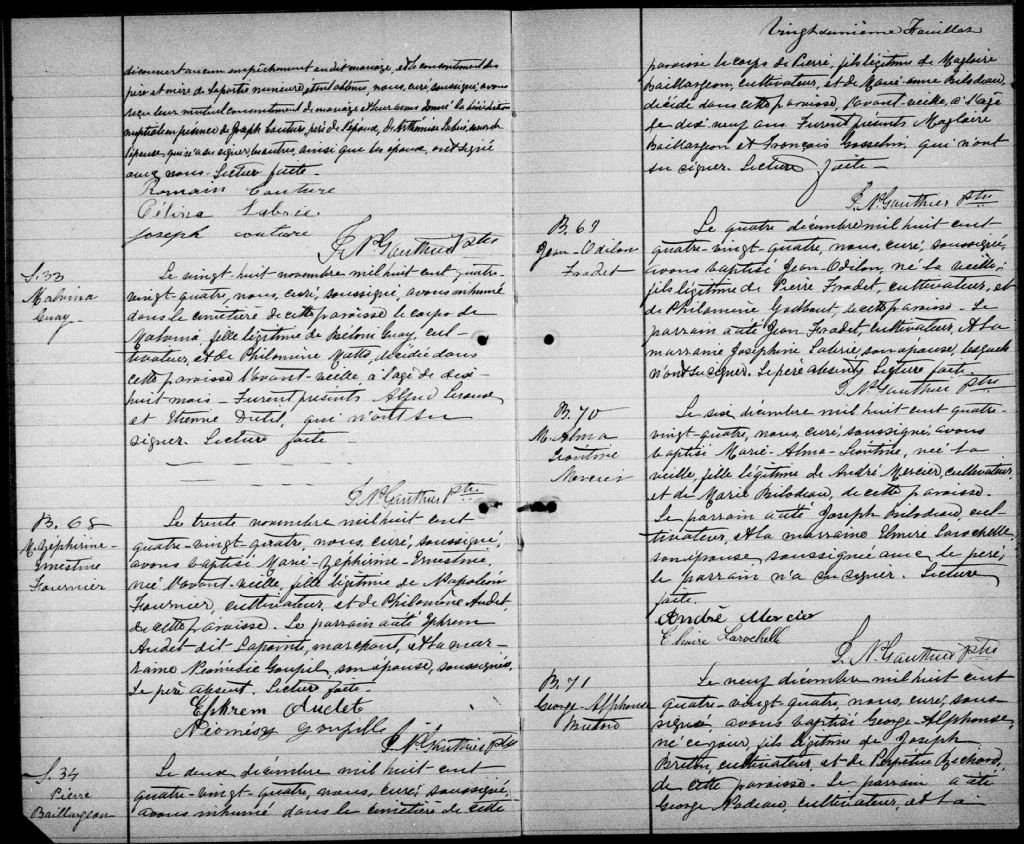 découvert aucun empêchement au dit mariage, et le consentement des
père et mère de la partie mineure étant obtenu, nous, curé, soussigné, avons
reçu leur mutuel consentement de mariage et leur avons donné la bénédiction
nuptiale en présence de Joseph Couture, père de l'époux, de
l'épouse, qui n'a su signer; les autres, ainsi que les époux, ont signé
avec nous. Lecture faite.
Romain Couture
Célina Labrie
Joseph couture
J. N. Gauthier Ptre
S. 33
Malvina
Guay
Le vingt-huit novembre mil huit cent quatre-
vingt-quatre, nous, curé, soussigné, avons inhumé
dans le cimetière de cette paroisse le corps de
Malvina, fille légitime de Béloni Guay, cul-
tivateur, et de Philomine, décédée dans
cette paroisse l'avant-veille, à l'age de dix-
huit mois. Furent présents Alfred
et Etienne Dutil, qui n'ont su
signer. Lecture faite
J. N. Gauthier Ptre
B. 68
M. Zéphirine-
Ernestine
Fournier
Le trente novembre mil huit cent
quatre-vingt-quatre, nous, curé, soussigné,
avons baptisé Marie-Zéphirine-Ernestine,
née l'avant-veille, fille légitime de Napoléon
Fournier, cultivateur, et de Philomène Audet,
de cette paroisse. Le parrain a été Ephrem
Audet dit Lapointe, marchand, et la mar-
raine Néomédie Goupil, son épouse, soussignés.
Le père absent. Lecture faite.
Ephrem Audet
Néomésy Goupille
J. N. Gauthier Ptre
S. 34
Pierre
Baillargeon
Le deux décembre mil huit cent
quatre-vingt-quatre, nous, curé, soussigné,
avons inhumé dans le cimetière de cette
Vingt-unième Feuillet
paroisse le corps de Pierre, fils légitime de Magloire
Baillargeon, cultivateur, et de Marie-Anne Bilodeau,
décédé dans cette paroisse, l'avant-veille, à l'age
de dix-neuf ans. Furent présents Magloire
Baillargeon et François Gosselin, qui n'ont
su signer. Lecture faite
J. N. Gauthier Ptre
B. 69
Jean-Odilon
Fradet
Le quatre décembre mil huit cent
quatre-vingt-quatre, nous, curé, soussigné,
avons baptisé Jean-Odilon, né la veille,
fils légitime de Pierre Fradet, cultivateur, et
de Philomine Godbout, de cette paroisse. Le
parrain a été Jean Fradet, cultivateur, et la
marraine Joséphine Labrie, son épouse, lesquels
n'ont su signer. Le père absent. Lecture faite.
J. N. Gauthier Ptre
B. 70
M. Alma
Léontine
Mercier
Le six décembre mil huit cent quatre-
vingt-quatre, nous, curé, soussigné, avons
baptisé Marie-Alma-Léontine, née la
veille, fille légitime de André Mercier, cultivateur,
et de Marie Bilodeau, de cette paroisse.
Le parrain a été Joseph Bilodeau, cul-
tivateur, et la marraine Elmire Larochelle,
son épouse soussignée avec le père;
le parrain n'a su signer. Lecture
faite.
André Mercier
Elmire Larochell
J. N. Gauthier Ptre
B. 71
George-Alphonse
Le neuf décembre mil huit cent
quatre-vingt-quatre, nous, curé, sous-
signé, avons baptisé George-Alphonse,
né ce jour, fils légitime de Joseph
Breton, cultivateur, et de Perpétue
de cette paroisse. Le parrain a été
George Nadeau, cultivateur, et la